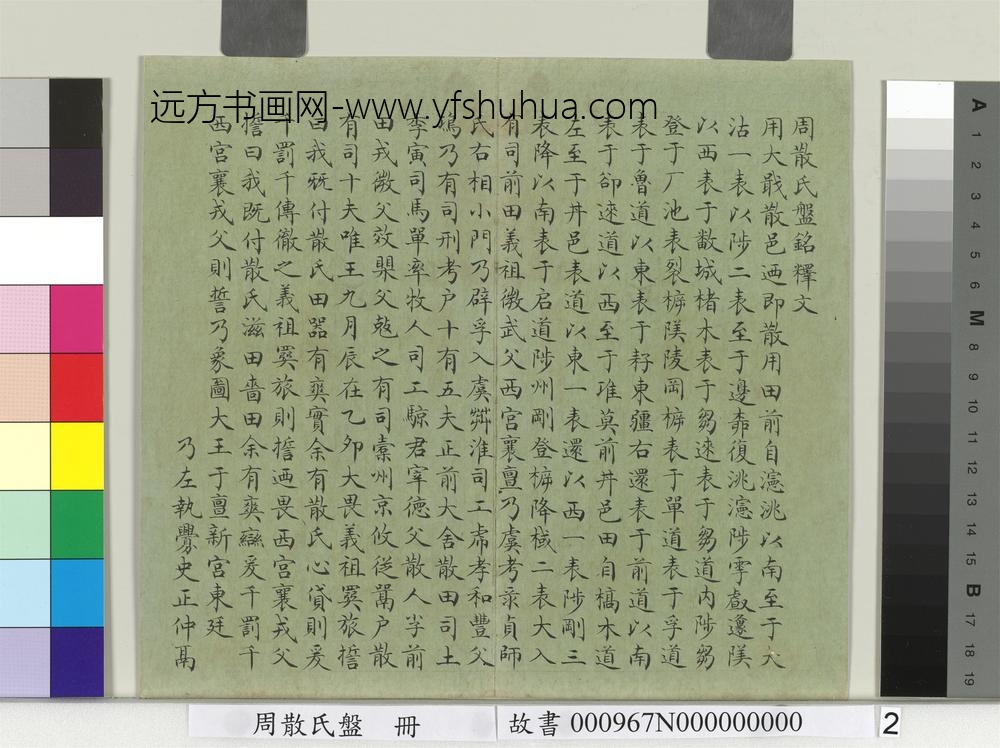 远方书画网-www.yfshuhua.com
周散氏盤銘釋文
用大戩散邑迺即散用田前自瀗洮以南至于大
沽一表以陟二表至于邊桒復洮瀗陟雩䖒邍䧅
以西表于敽城楮木表于芻逨表于芻道内陟芻
登于厂池表裂𣒌䧅陵岡𣒌表于單道表于孚道
表于魯道以東表于𦓥東疆右還表于前道以南
表于郤逨道以西至于琟莫前丼邑田自槁木道
左至于丼邑表道以東一表還以西一表陟剛三
表降以南表于启道陟州剛登𣒌降棫二表大入
有司前田義祖微武父西宮襄亶乃虞考彔貞師
氏右相小門乃辟孚入虞淮司工虎孝和豐父
鴻乃有司刑考户十有五夫正前大舍散田司土
李寅司馬單率牧人司工騬君宰德父散人半前
田戎微父效㮚父𢻻之有司橐州京攸従鬲户散
有司十夫唯王九月辰在乙夘大畏義祖䍘旅擔
曰我旣付散氏田器有爽實余有散氏心貸則爰
千罰千傳徹之義祖䍘旅則擔迺畏西宮襄戎父
擔曰我旣付散氏滋田嗇田余有爽䜌爰千罰千
西宮襄戎父則誓乃象圖大王于亶新宮東廷
乃左執史正仲鬲
周散氏盤 冊
故書 000967N000000000
2
A 1 2 3 4 5 6 M 8 9 10 11 12 13 14 15 B 17 18 19